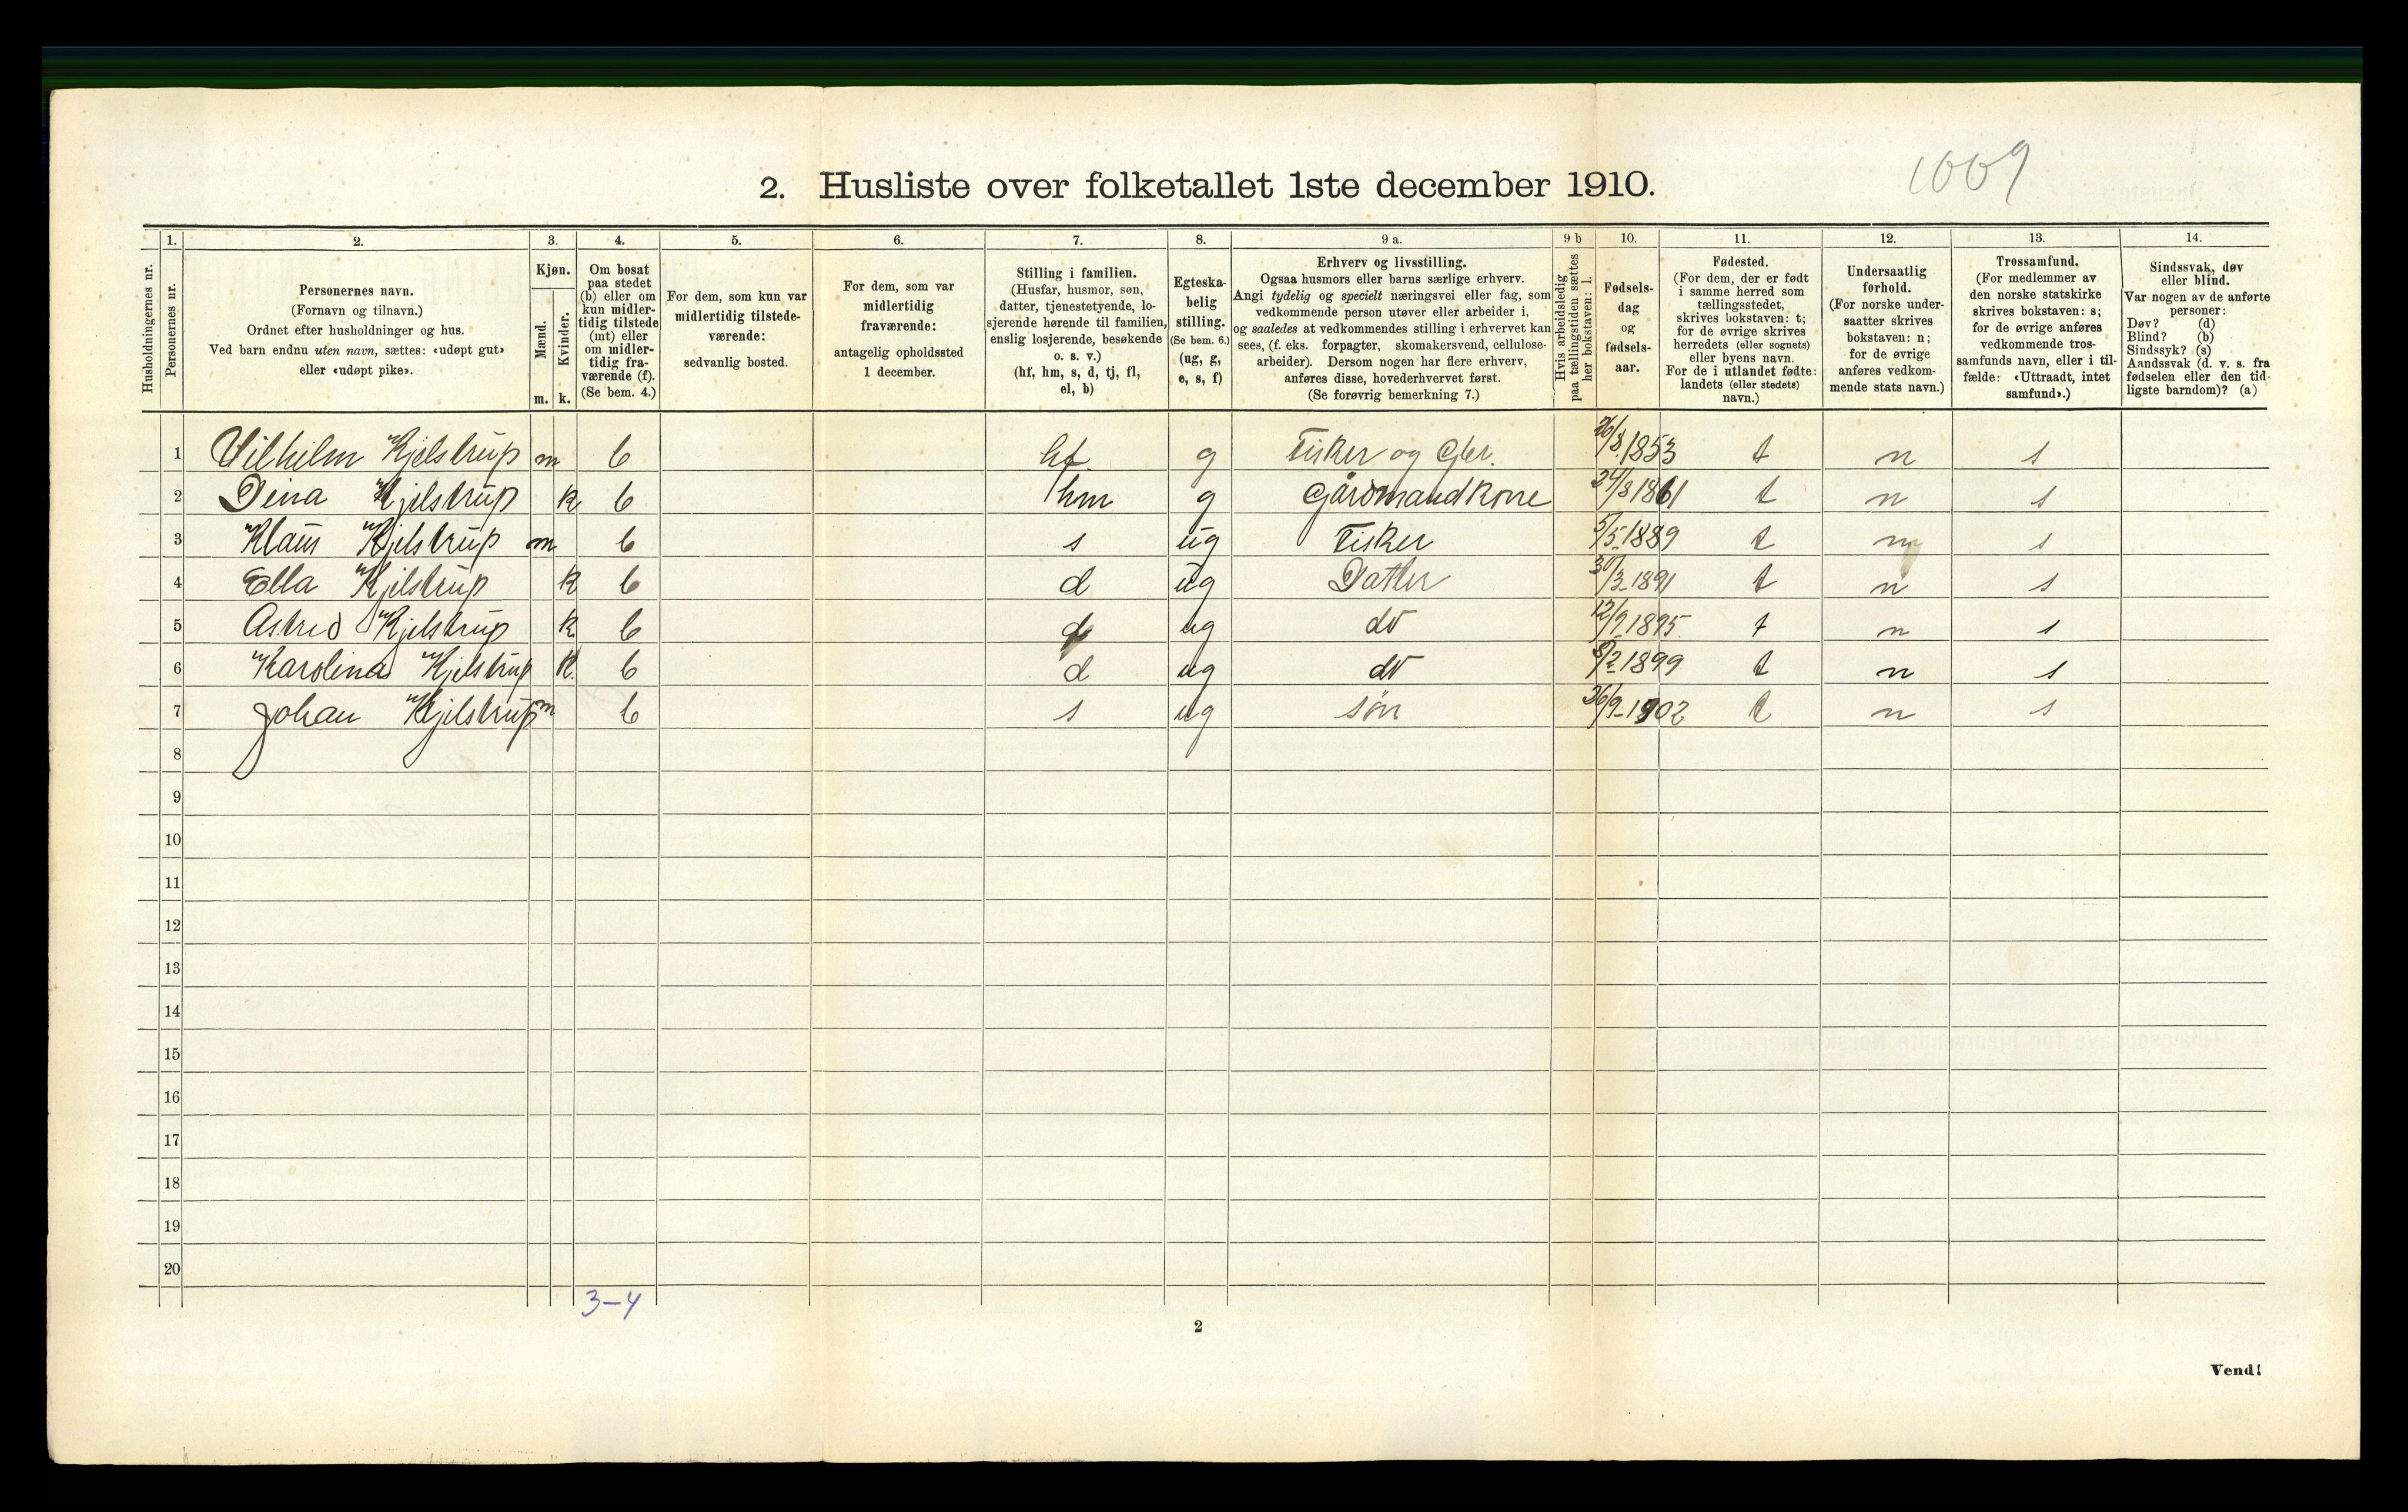 1009
2. Husliste over folketallet 1ste december 1910.
Husholdningernes nr.
1. Personernes nr.
2. Personernes navn.
(Fornavn og tilnavn.)
Ordnet efter husholdninger og hus.
Ved barn endnu uten navn, sættes: «udøpt gut»
eller «udøpt pike».
3. Kjøn.
Mænd. m.
Kvinder. k.
4. Om bosat
paa stedet
(b) eller om
kun midler-
tidig tilstede
(mt) eller
om midler-
tidig fra-
værende (f).
(Se bem. 4.)
5. For dem, som kun var
midlertidig tilstede-
værende:
sedvanlig bosted.
6. For dem, som var
midlertidig
fraværende:
antagelig opholdssted
1 december.
7. Stilling i familien.
(Husfar, husmor, søn,
datter, tjenestetyende, lo-
sjerende hørende til familien,
enslig losjerende, besøkende
o. s. v.)
(hf, hm, s, d, tj, fl,
el, b)
8. Egteska-
belig
stilling.
(Se bem. 6.)
(ug, g,
e, s, f)
9 a. Erhverv og livsstilling.
Ogsaa husmors eller barns særlige erhverv.
Angi tydelig og specielt næringsvei eller fag, som
vedkommende person utøver eller arbeider i,
og saaledes at vedkommendes stilling i erhvervet kan
sees, (f. eks. forpagter, skomakersvend, cellulose-
arbeider). Dersom nogen har flere erhverv,
anføres disse, hovederhvervet først.
(Se forøvrig bemerkning 7.)
9 b Hvis arbeidsledig
paa tællingstiden sættes
her bokstaven: l.
10. Fødsels-
dag
og
fødsels-
aar.
11. Fødested.
(For dem, der er født
i samme herred som
tællingsstedet,
skrives bokstaven: t;
for de øvrige skrives
herredets (eller sognets)
eller byens navn.
For de i utlandet fødte:
landets (eller stedets)
navn.)
12. Undersaatlig
forhold.
(For norske under-
saatter skrives
bokstaven: n;
for de øvrige
anføres vedkom-
mende stats navn.)
13. Trossamfund.
(For medlemmer av
den norske statskirke
skrives bokstaven: s;
for de øvrige anføres
vedkommende tros-
samfunds navn, eller i til-
fælde: «Uttraadt, intet
samfund».)
14. Sindssvak, døv
eller blind.
Var nogen av de anførte
personer:
Døv? (d)
Blind? (b)
Sindssyk? (s)
Aandssvak (d. v. s. fra
fødselen eller den tid-
ligste barndom)? (a)
1 Vilhelm Kjelstrup m b hf g Fisker og Gbr. 26/8.1853 t n s
2 Dina Kjelstrup k b hm g Gårdmandkone 24/8 1861 t n s
3 Klaus Kjelstrup m b s ug Fisker 5/5-1889 t n s
4 Ella Kjelstrup k b d ug Datter 30/3-1891 t n s
5 Astrid Kjelstrup k b d ug do 12/9.1895 t n s
6 Karolina Kjelstrup k. b d ug do 8/2-1899 t n s
7 Johan Kjelstrup m b s ug søn 26/9-1902 t n s
8
9
10
11
12
13
14
15
16
17
18
19
20
3-4
2
Vend!